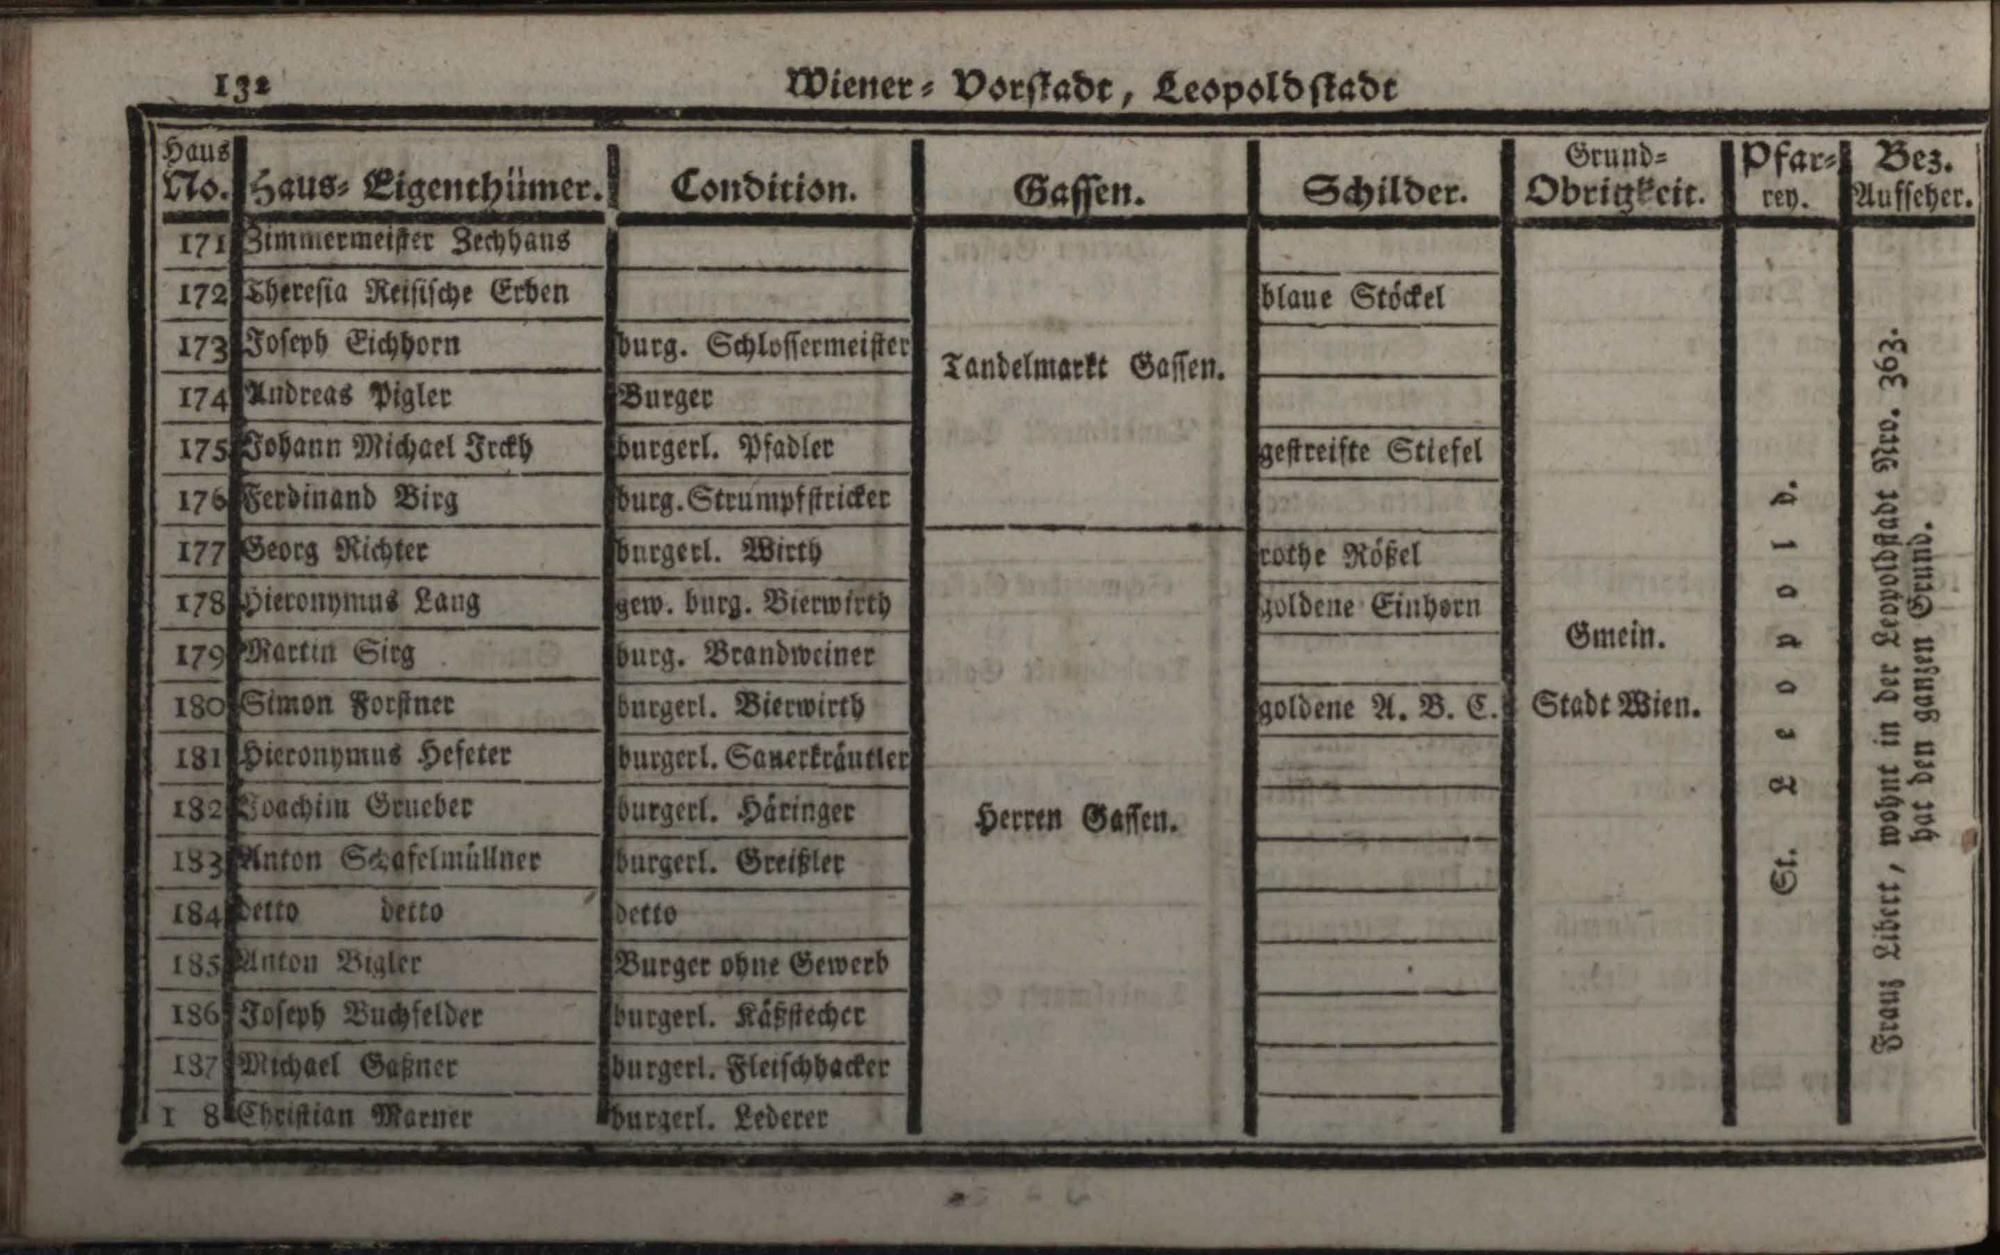 132 Wiener- Vorstadt, Leopoldstadt
Haus No. Haus-Eigenthümer. Condition. Gassen. Schilder. Grund-Obrigkeit. Pfar-rey. Bez. Aufseher.
171 Zimmermeister Zechhaus
172 Theresia Reisische Erben blaue Stöckel
173 Joseph Eichhorn burg. Schlossermeister
Tandelmarkt Gassen.
174 Andreas Pigler Burger
175 Johann Michael Irckh burgerl. Pfadler gestreifte Stiefel
176 Ferdinand Birg burg. Strumpfstricker
177 Georg Richter burgerl. Wirth rothe Rößel
178 Hieronymus Lang gew. burg. Bierwirth goldene Einhorn
Gmein.
179 Martin Sirg burg. Brandweiner
180 Simon Forstner burgerl. Bierwirth goldene A. B. C. Stadt Wien.
181 Hieronymus Hefeter burgerl. Sauerkräutler
182 Joachim Grueber burgerl. Häringer
Herren Gassen.
183 Anton Schafelmüllner burgerl. Greißler
184 detto detto detto
185 Anton Bigler Burger ohne Gewerb
186 Joseph Buchfelder burgerl. Käßstecher
187 Michael Gaßner burgerl. Fleischhacker
1 8 Christian Marner burgerl. Lederer
St. Leopold.
Franz Libert, wohnt in der Leopoldstadt Nro. 363.
hat den ganzen Grund.